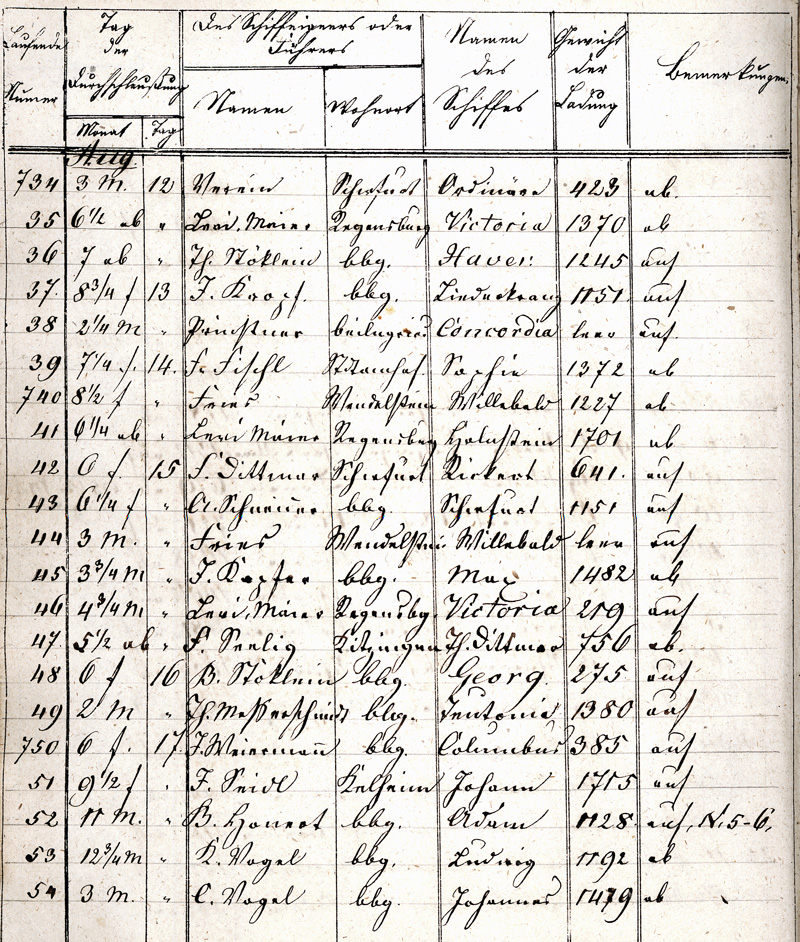 Laufende Numer
Tag der Durchschleußung
Monat Tag
Des Schiffeigners oder Führers
Namen Wohnort
Namen des Schiffes
Gewicht der Ladung
Bemerkungen
Aug.
734 3 M. 12 Verein Schwfurt Ordinäre 423 ab.
35 6 1/2 ab " Levi, Maier Regensburg Victoria 1370 ab
36 7 ab " Th. Stöklein bbg. Haver 1245 auf
37. 8 3/4 f 13 J. Kropf. bbg. Liederkranz 1151. auf
38 2 1/4 M " Concordia leer auf.
39 7 1/4 f. 14. F. Fischl Stdtamhof. Sophie 1372 ab
740 8 1/2 f " Fries Wendelstein Willebald 1227 ab
41 6 1/4 ab " Levi Maier Regensburg Holnstein 1701 ab
42 6 f. 15 F. Dittmar Schwfurt Rickert 641. auf
43 6 1/4 f " A. Schreiner bbg. Schwfurt 1151 auf
44 3 M. " Fries Wendelstein Willebald leer auf
45 3 3/4 M " J. Kapfer bbg. Max 1482 ab
46 4 3/4 M " Levi, Maier Regensbg. Victoria 219 auf
47. 5 1/2 ab " F. Seelig Kitzingen Th. Dittmar 756 ab.
48 6 f 16 B. Stöklein bbg. Georg. 275 auf
49 2 M " Th. Messerschmidt bbg. Teutonia 1380 auf
750 6 f. 17 J. Weiermañ bbg. Columbus 385 auf
51 9 1/2 f " F. Seidl Kelheim Johann 1715 auf
52 11 M. " B. Honert bbg. Adam 1128. auf, N. 5-6.
53 12 3/4 M " K. Vogel bbg. Ludwig 1192 ab
54 3 M. " C. Vogel bbg. Johannes 1479 ab